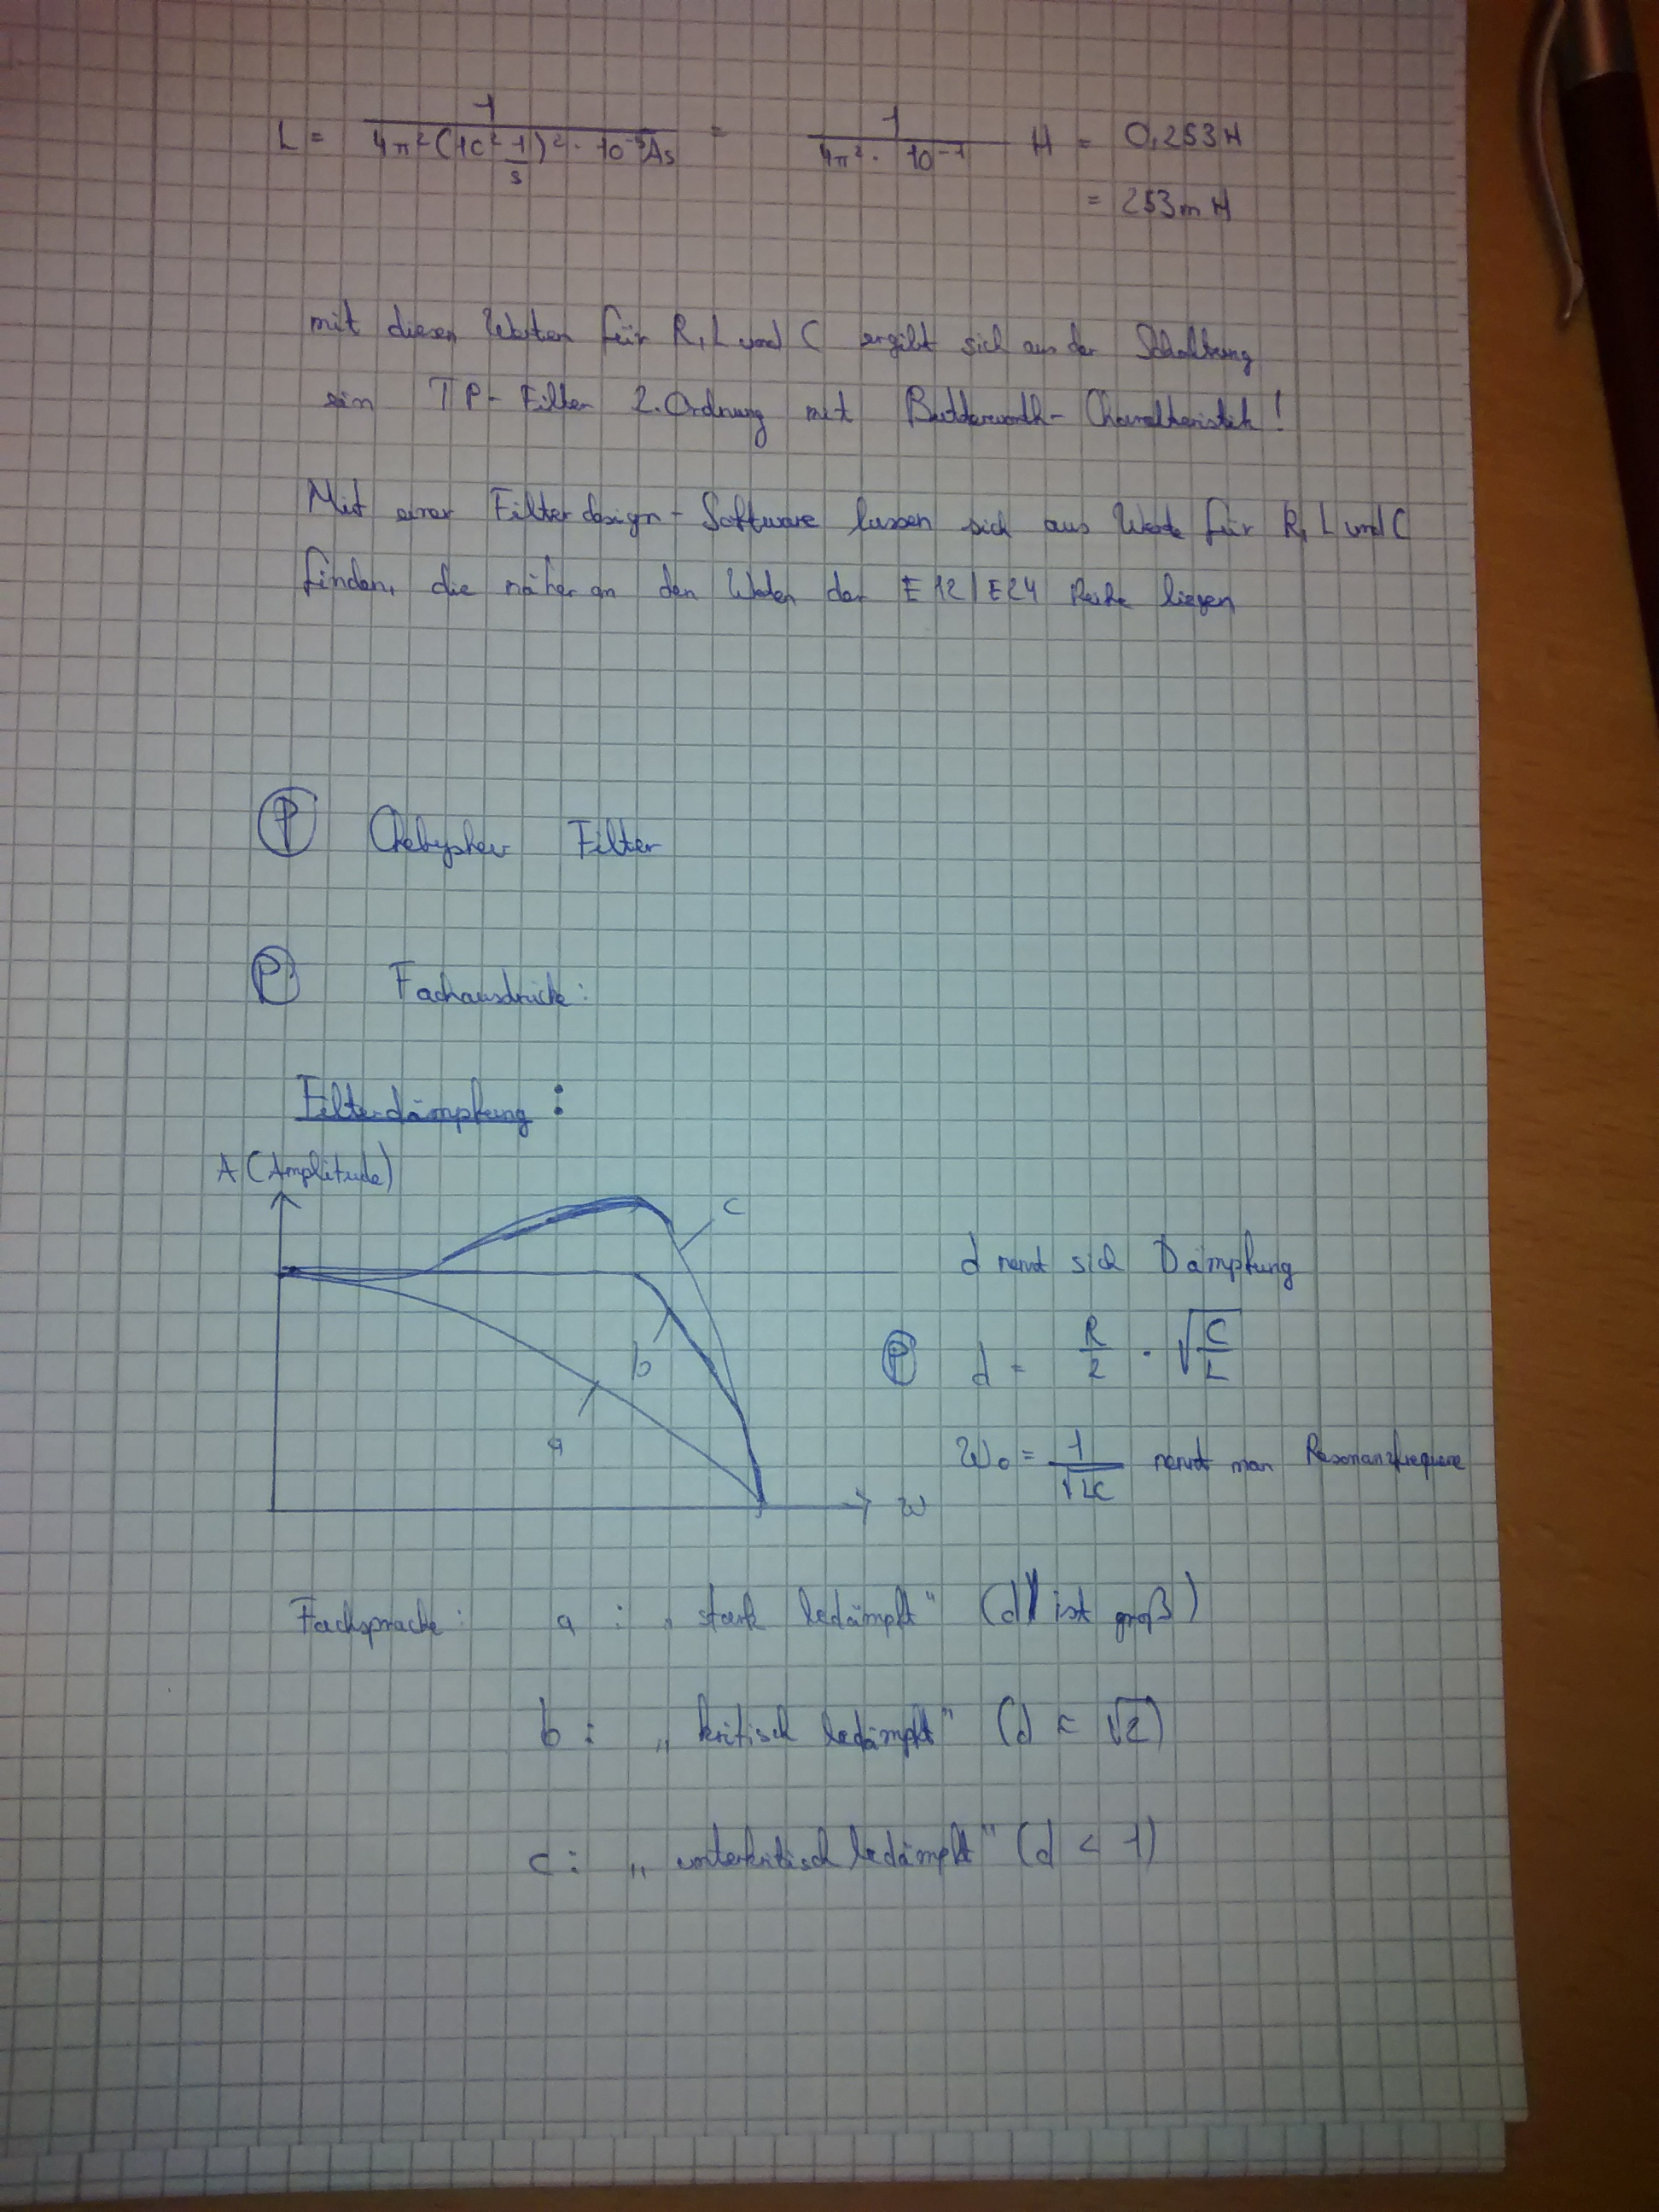 L = 1 / (4π² (10² 1/s)² · 10⁻⁵ As) = 1 / (4π² · 10⁻¹) H = 0,253 H
= 253 mH
mit diesen Werten für R, L und C ergibt sich aus der Schaltung
ein TP-Filter 2. Ordnung mit Butterworth-Charakteristik!
Mit einer Filterdesign-Software lassen sich aus Werte für R, L und C
finden, die näher an den Werten der E12/E24 Reihe liegen
P Chebyshev Filter
P Fachausdrücke:
Filterdämpfung:
A (Amplitude)
c
b
a
ω
d nennt sich Dämpfung
P d = R/2 · √(C/L)
ω₀ = 1/√LC nennt man Resonanzfrequenz
Fachsprache: a : „stark bedämpft" (d ist groß)
b: „kritisch bedämpft" (d = √2)
c: „unterkritisch bedämpft" (d < 1)